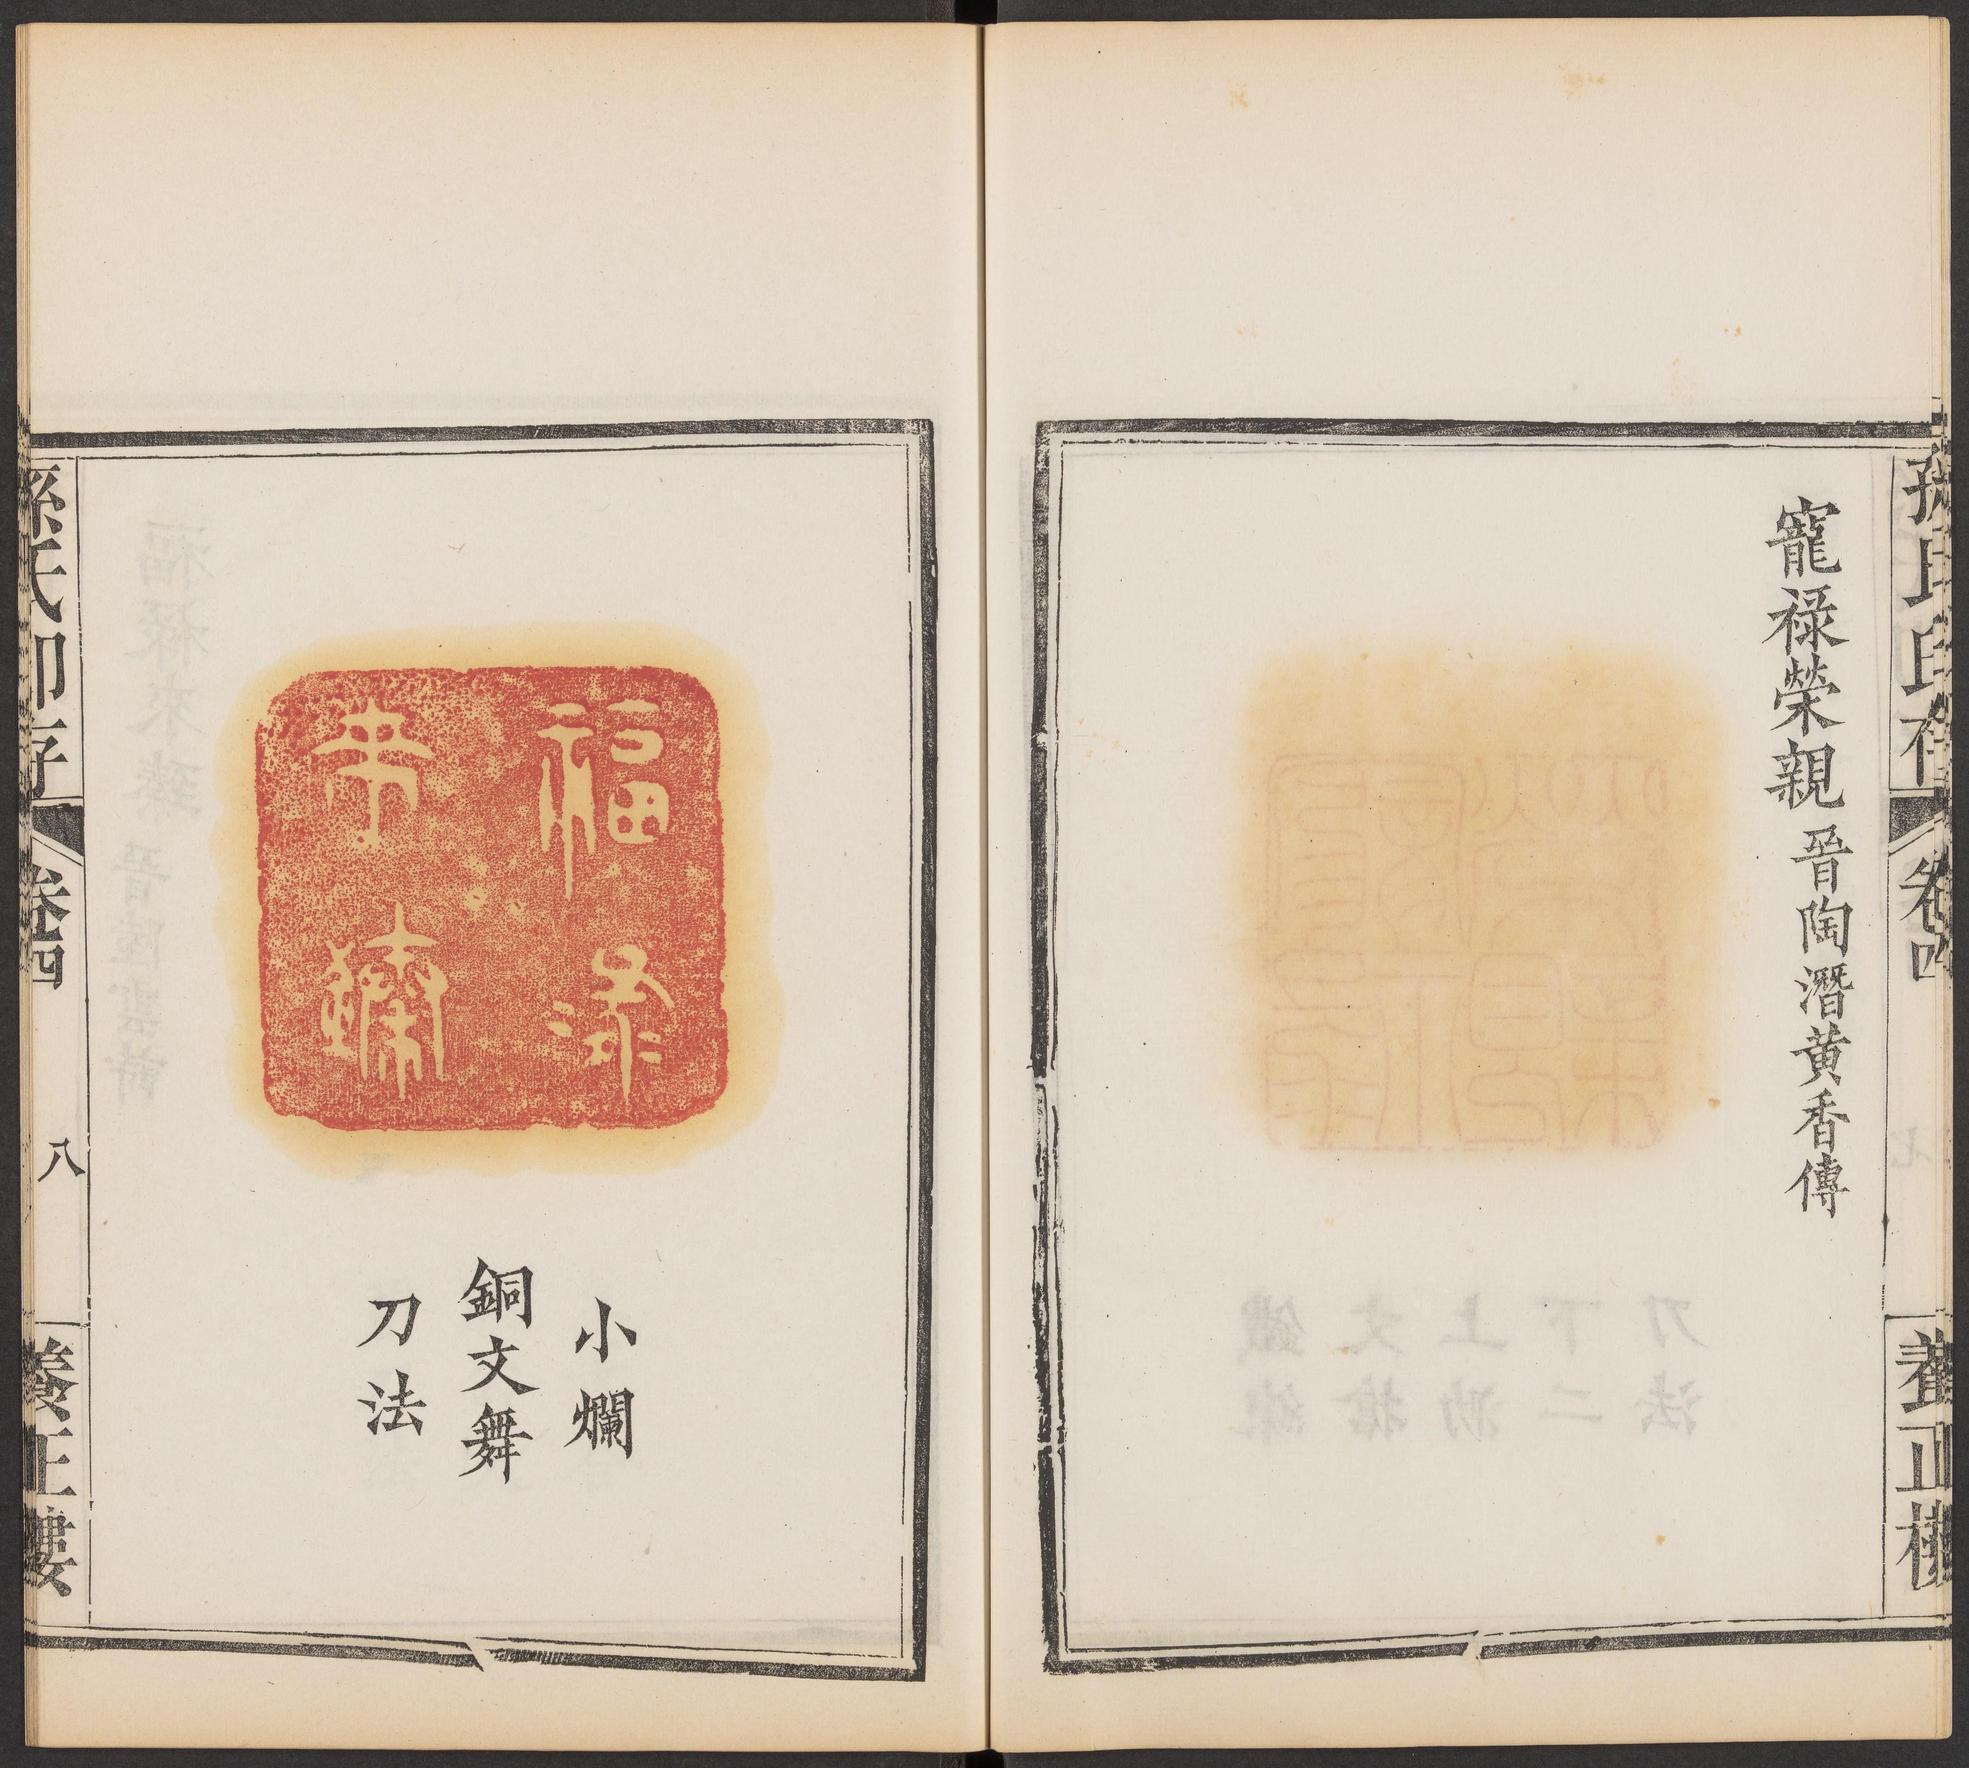 寵祿榮親 晉陶潛黃香傳
孫氏印存
卷四
養正樓
福祿來臻
小爛
銅文舞
刀法
孫氏印存
卷四
八
養正樓